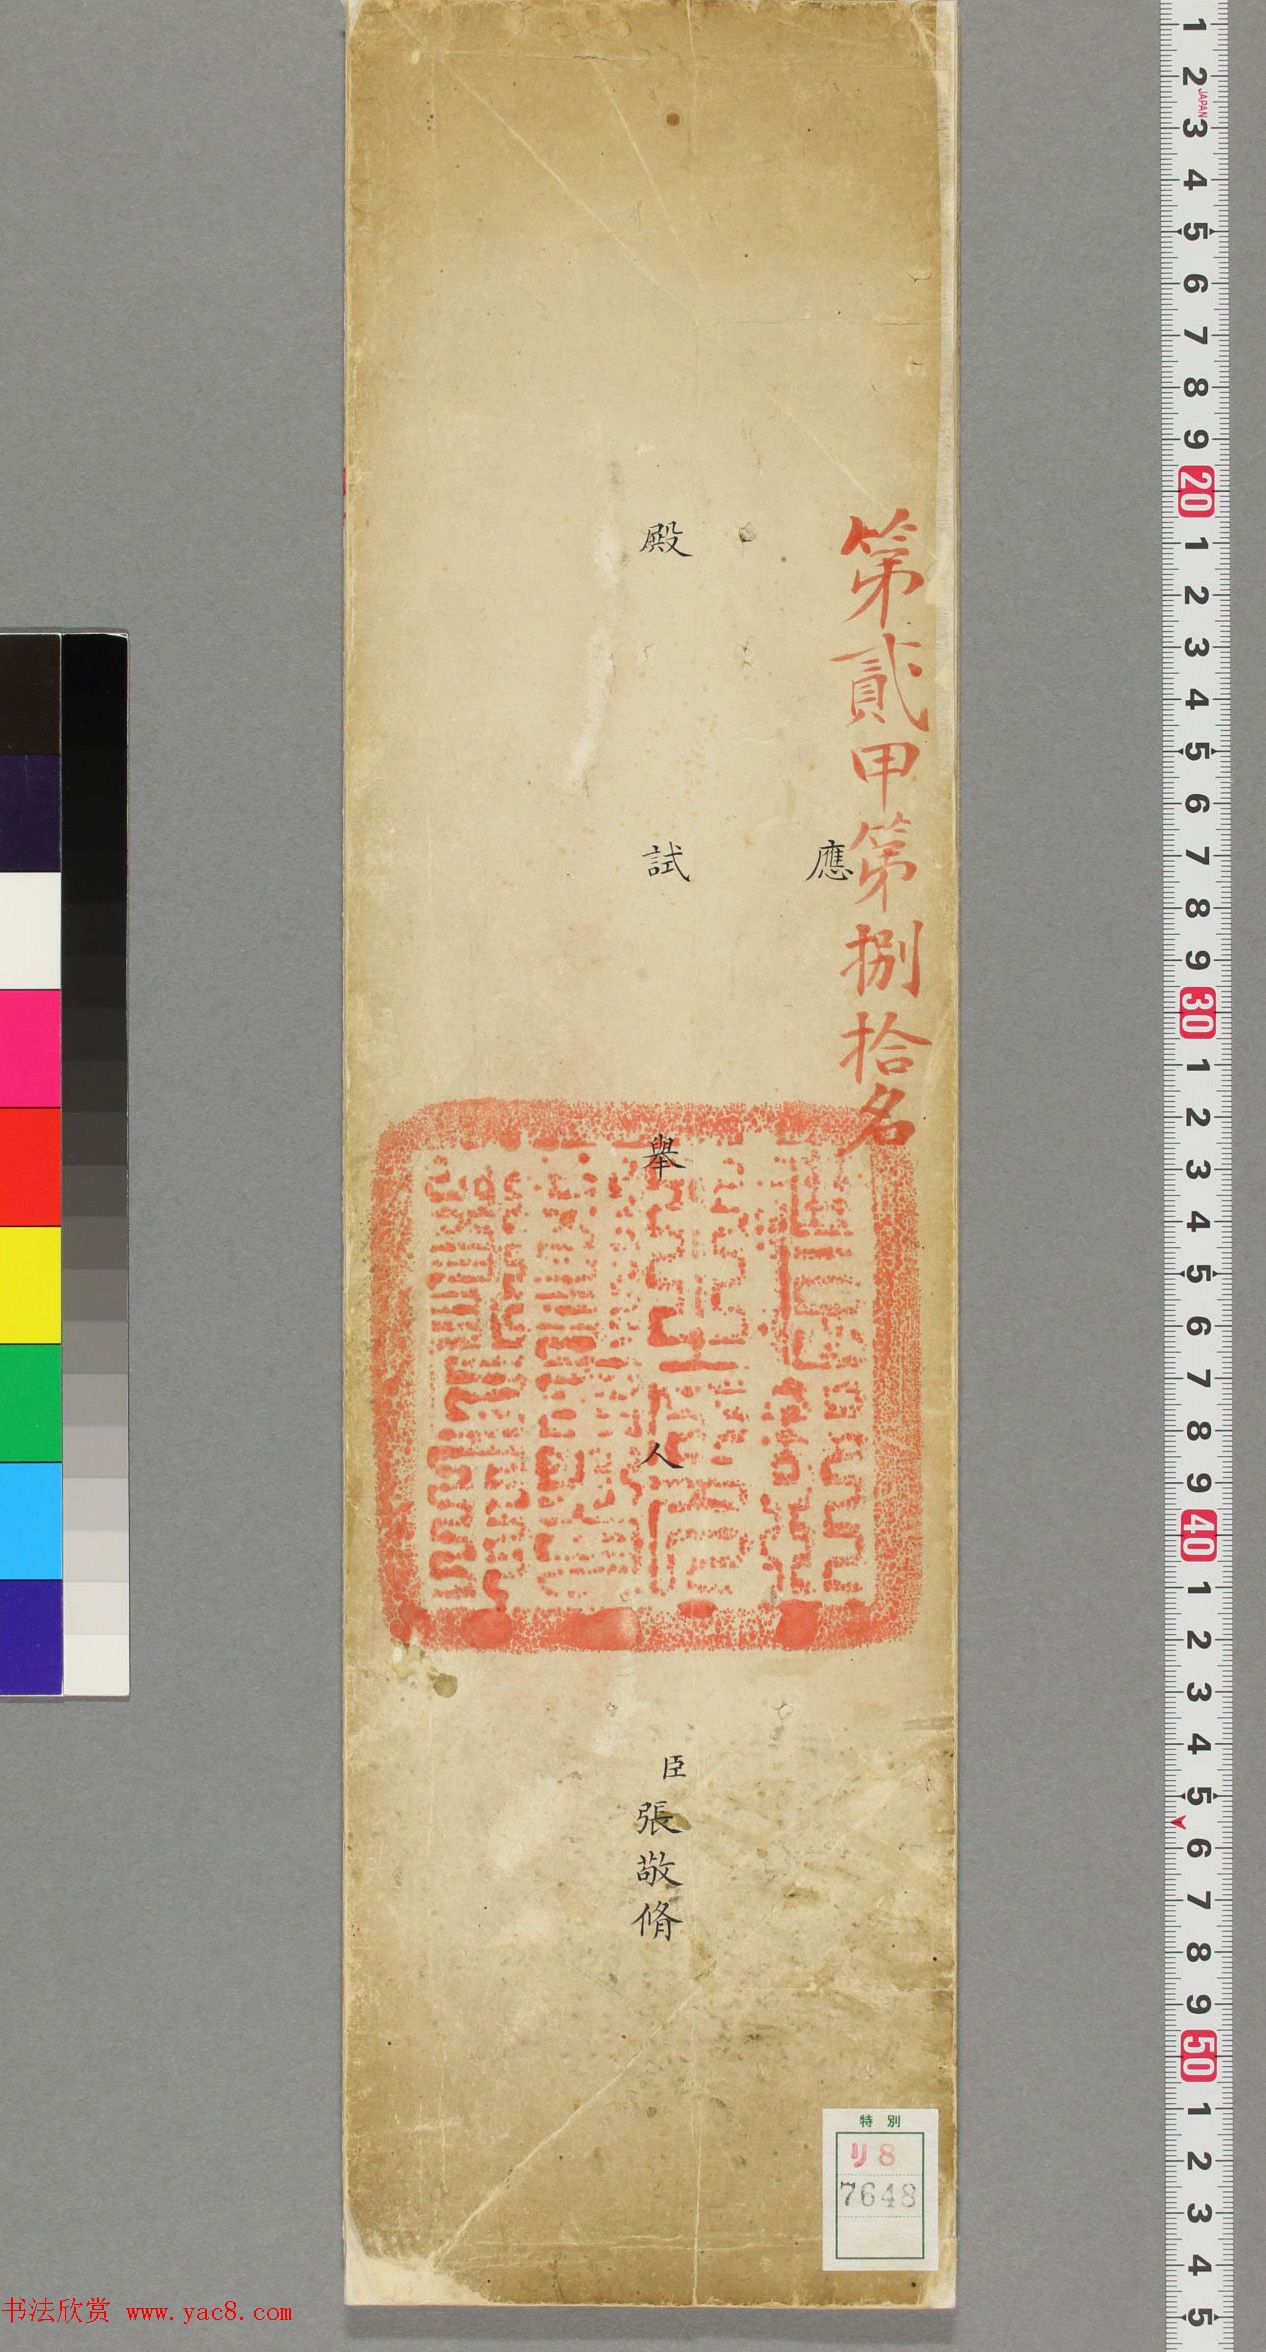 第貳甲第捌拾名
應
殿試舉人臣張敬脩
特別
リ8
7648
书法欣赏 www.yac8.com
JAPAN
1 2 3 4 5 6 7 8 9 20 1 2 3 4 5 6 7 8 9 30 1 2 3 4 5 6 7 8 9 40 1 2 3 4 5 6 7 8 9 50 1 2 3 4 5